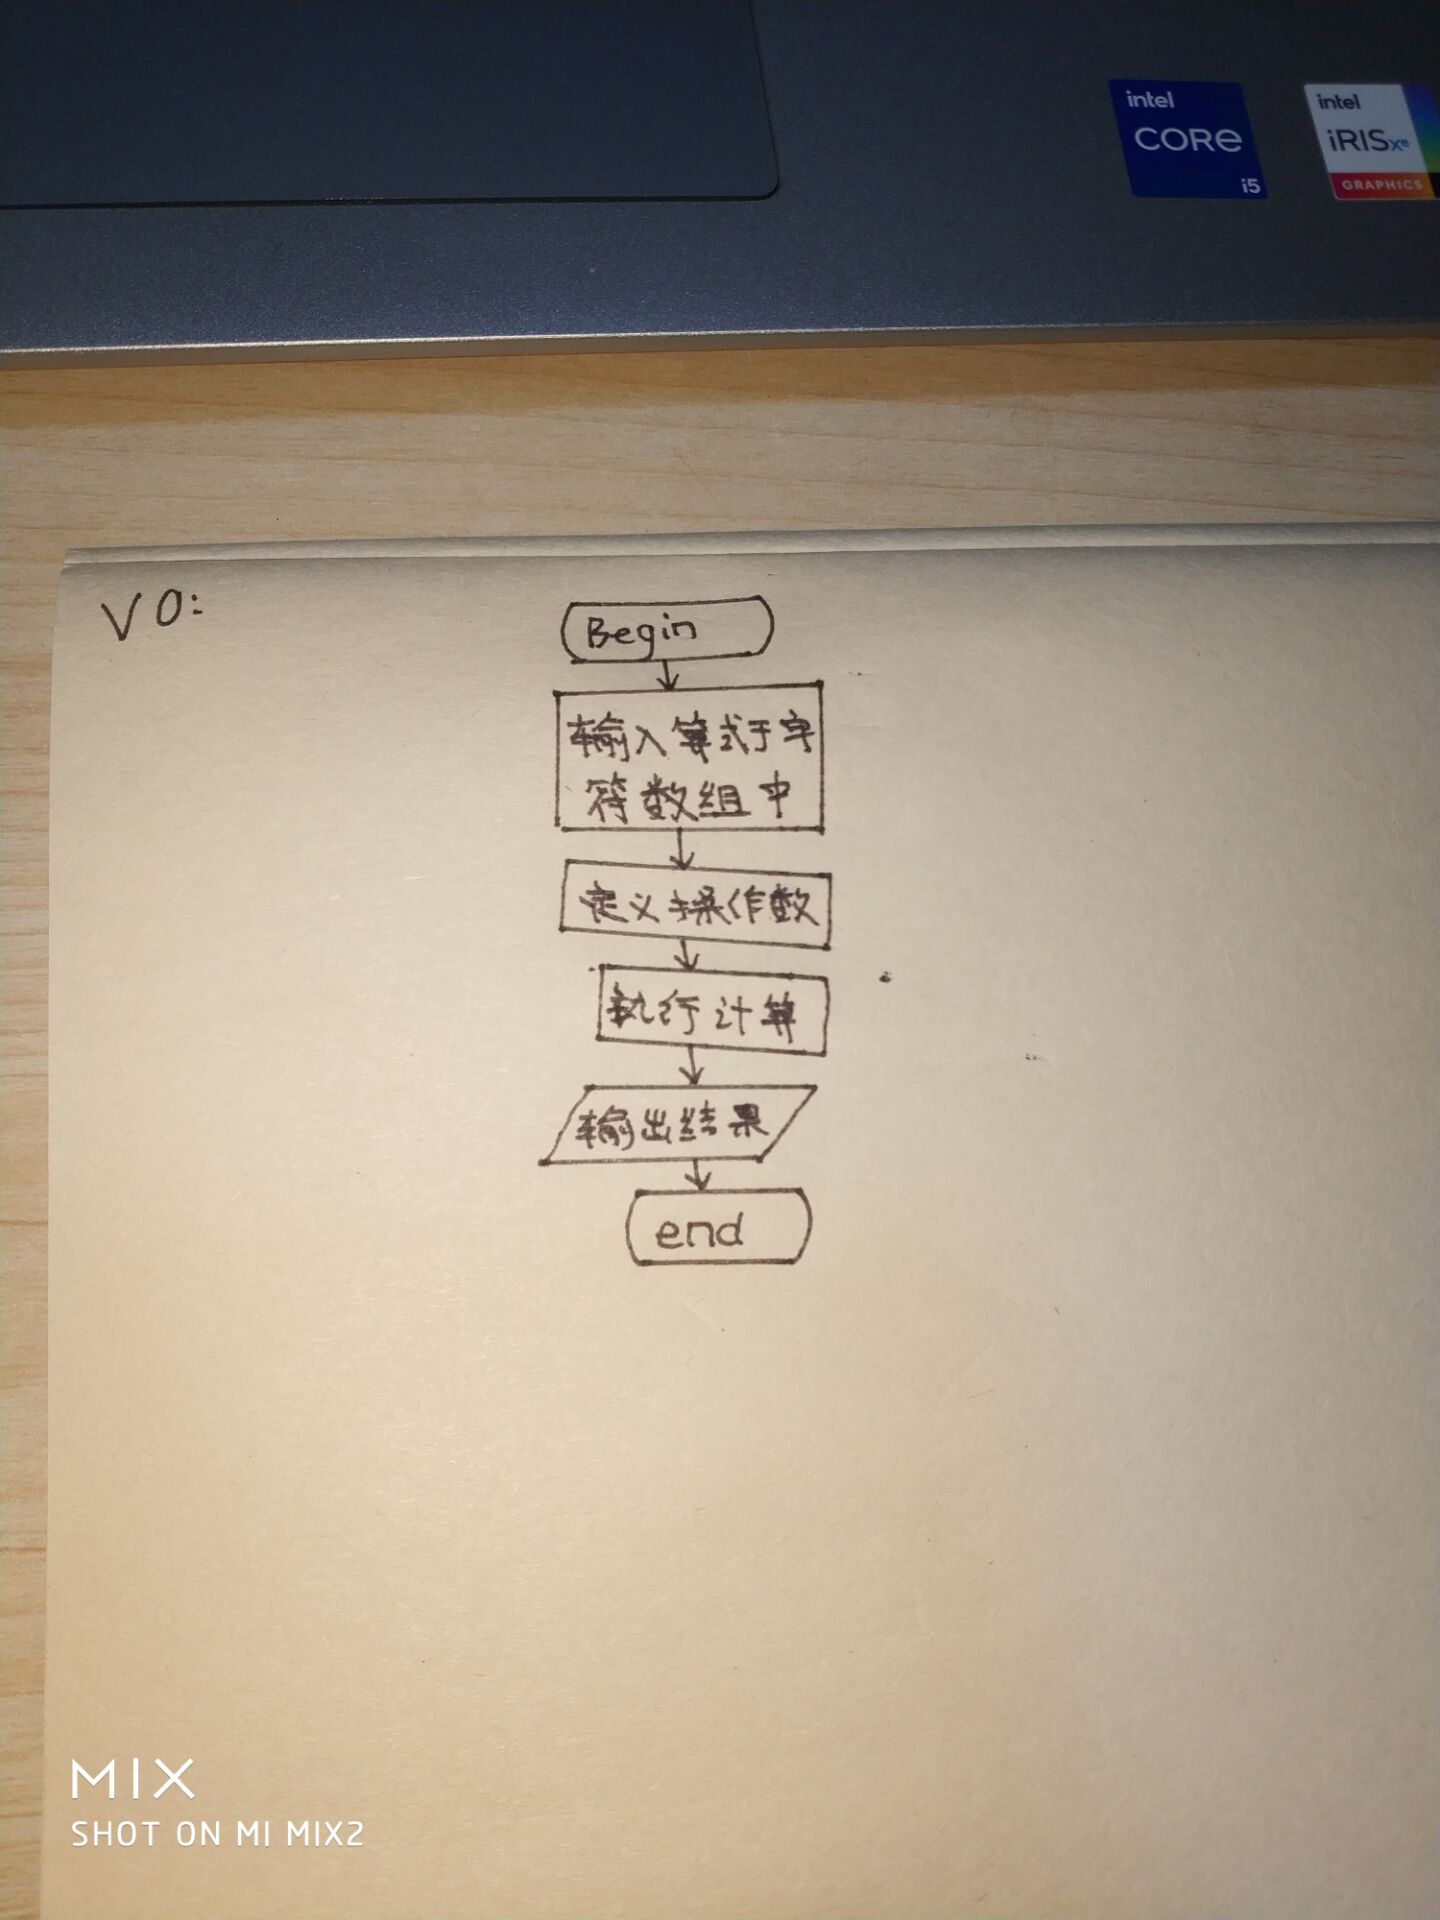 intel
CORE
i5
intel
iRISxe
GRAPHICS
V0:
Begin
输入算式于字
符数组中
定义操作数
执行计算
输出结果
end
MIX
SHOT ON MI MIX2